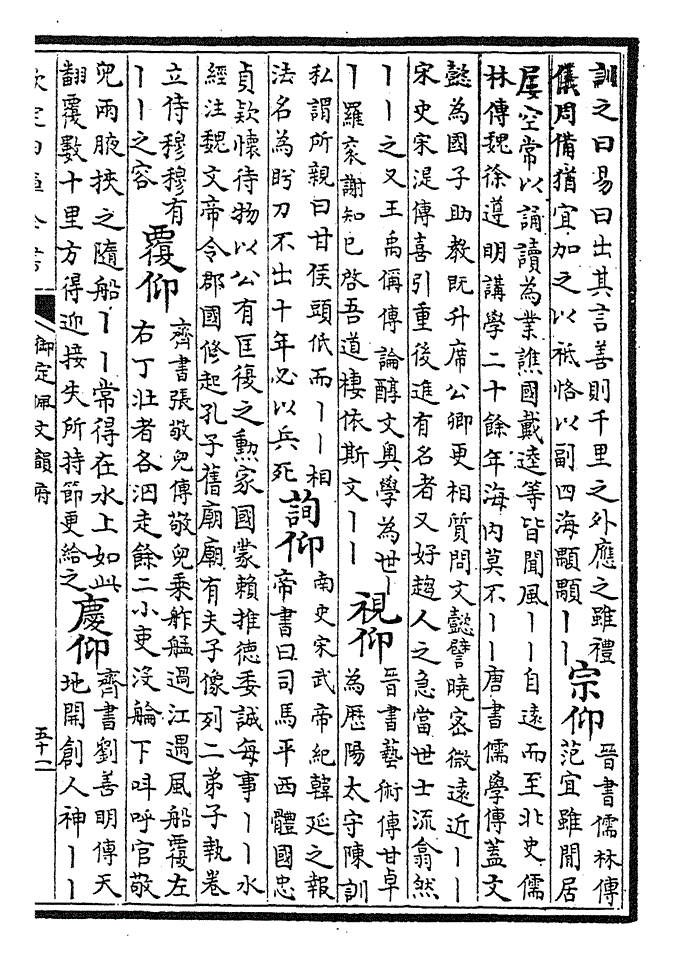 訓之曰易曰出其言善則千里之外應之雖禮
儀周備猶宜加之以祗恪以副四海顒顒丨丨
宗仰
晉書儒林傳
范宜雖閒居
屢空常以誦讀為業譙國戴逵等皆聞風丨丨自遠而至北史儒
林傳魏徐遵明講學二十餘年海內莫不丨丨唐書儒學傳蓋文
懿為國子助教既升席公卿更相質問文懿譬曉密微遠近丨丨
宋史宋湜傳喜引重後進有名者又好趨人之急當世士流翕然
丨丨之又王禹偁傳論醇文奧學為世丨
丨羅袞謝知已啓吾道棲依斯文丨丨
視仰
晉書藝術傳甘卓
為歷陽太守陳訓
私謂所親曰甘侯頭低而丨丨相
法名為眄刀不出十年必以兵死
詢仰
南史宋武帝紀韓延之報
帝書曰司馬平西體國忠
貞欵懷待物以公有匡復之勳家國蒙賴推德委誠每事丨丨水
經注魏文帝令郡國修起孔子舊廟廟有夫子像列二弟子執卷
立侍穆穆有
丨丨之容
覆仰
齊書張敬兒傳敬兒乘舴艋過江遇風船覆左
右丁壯者各泅走餘二小吏沒艙下叫呼官敬
兒兩腋挾之隨船丨丨常得在水上如此
翻覆數十里方得迎接失所持節更給之
慶仰
齊書劉善明傳天
地開創人神丨丨
欽定四庫全書
御定佩文韻府